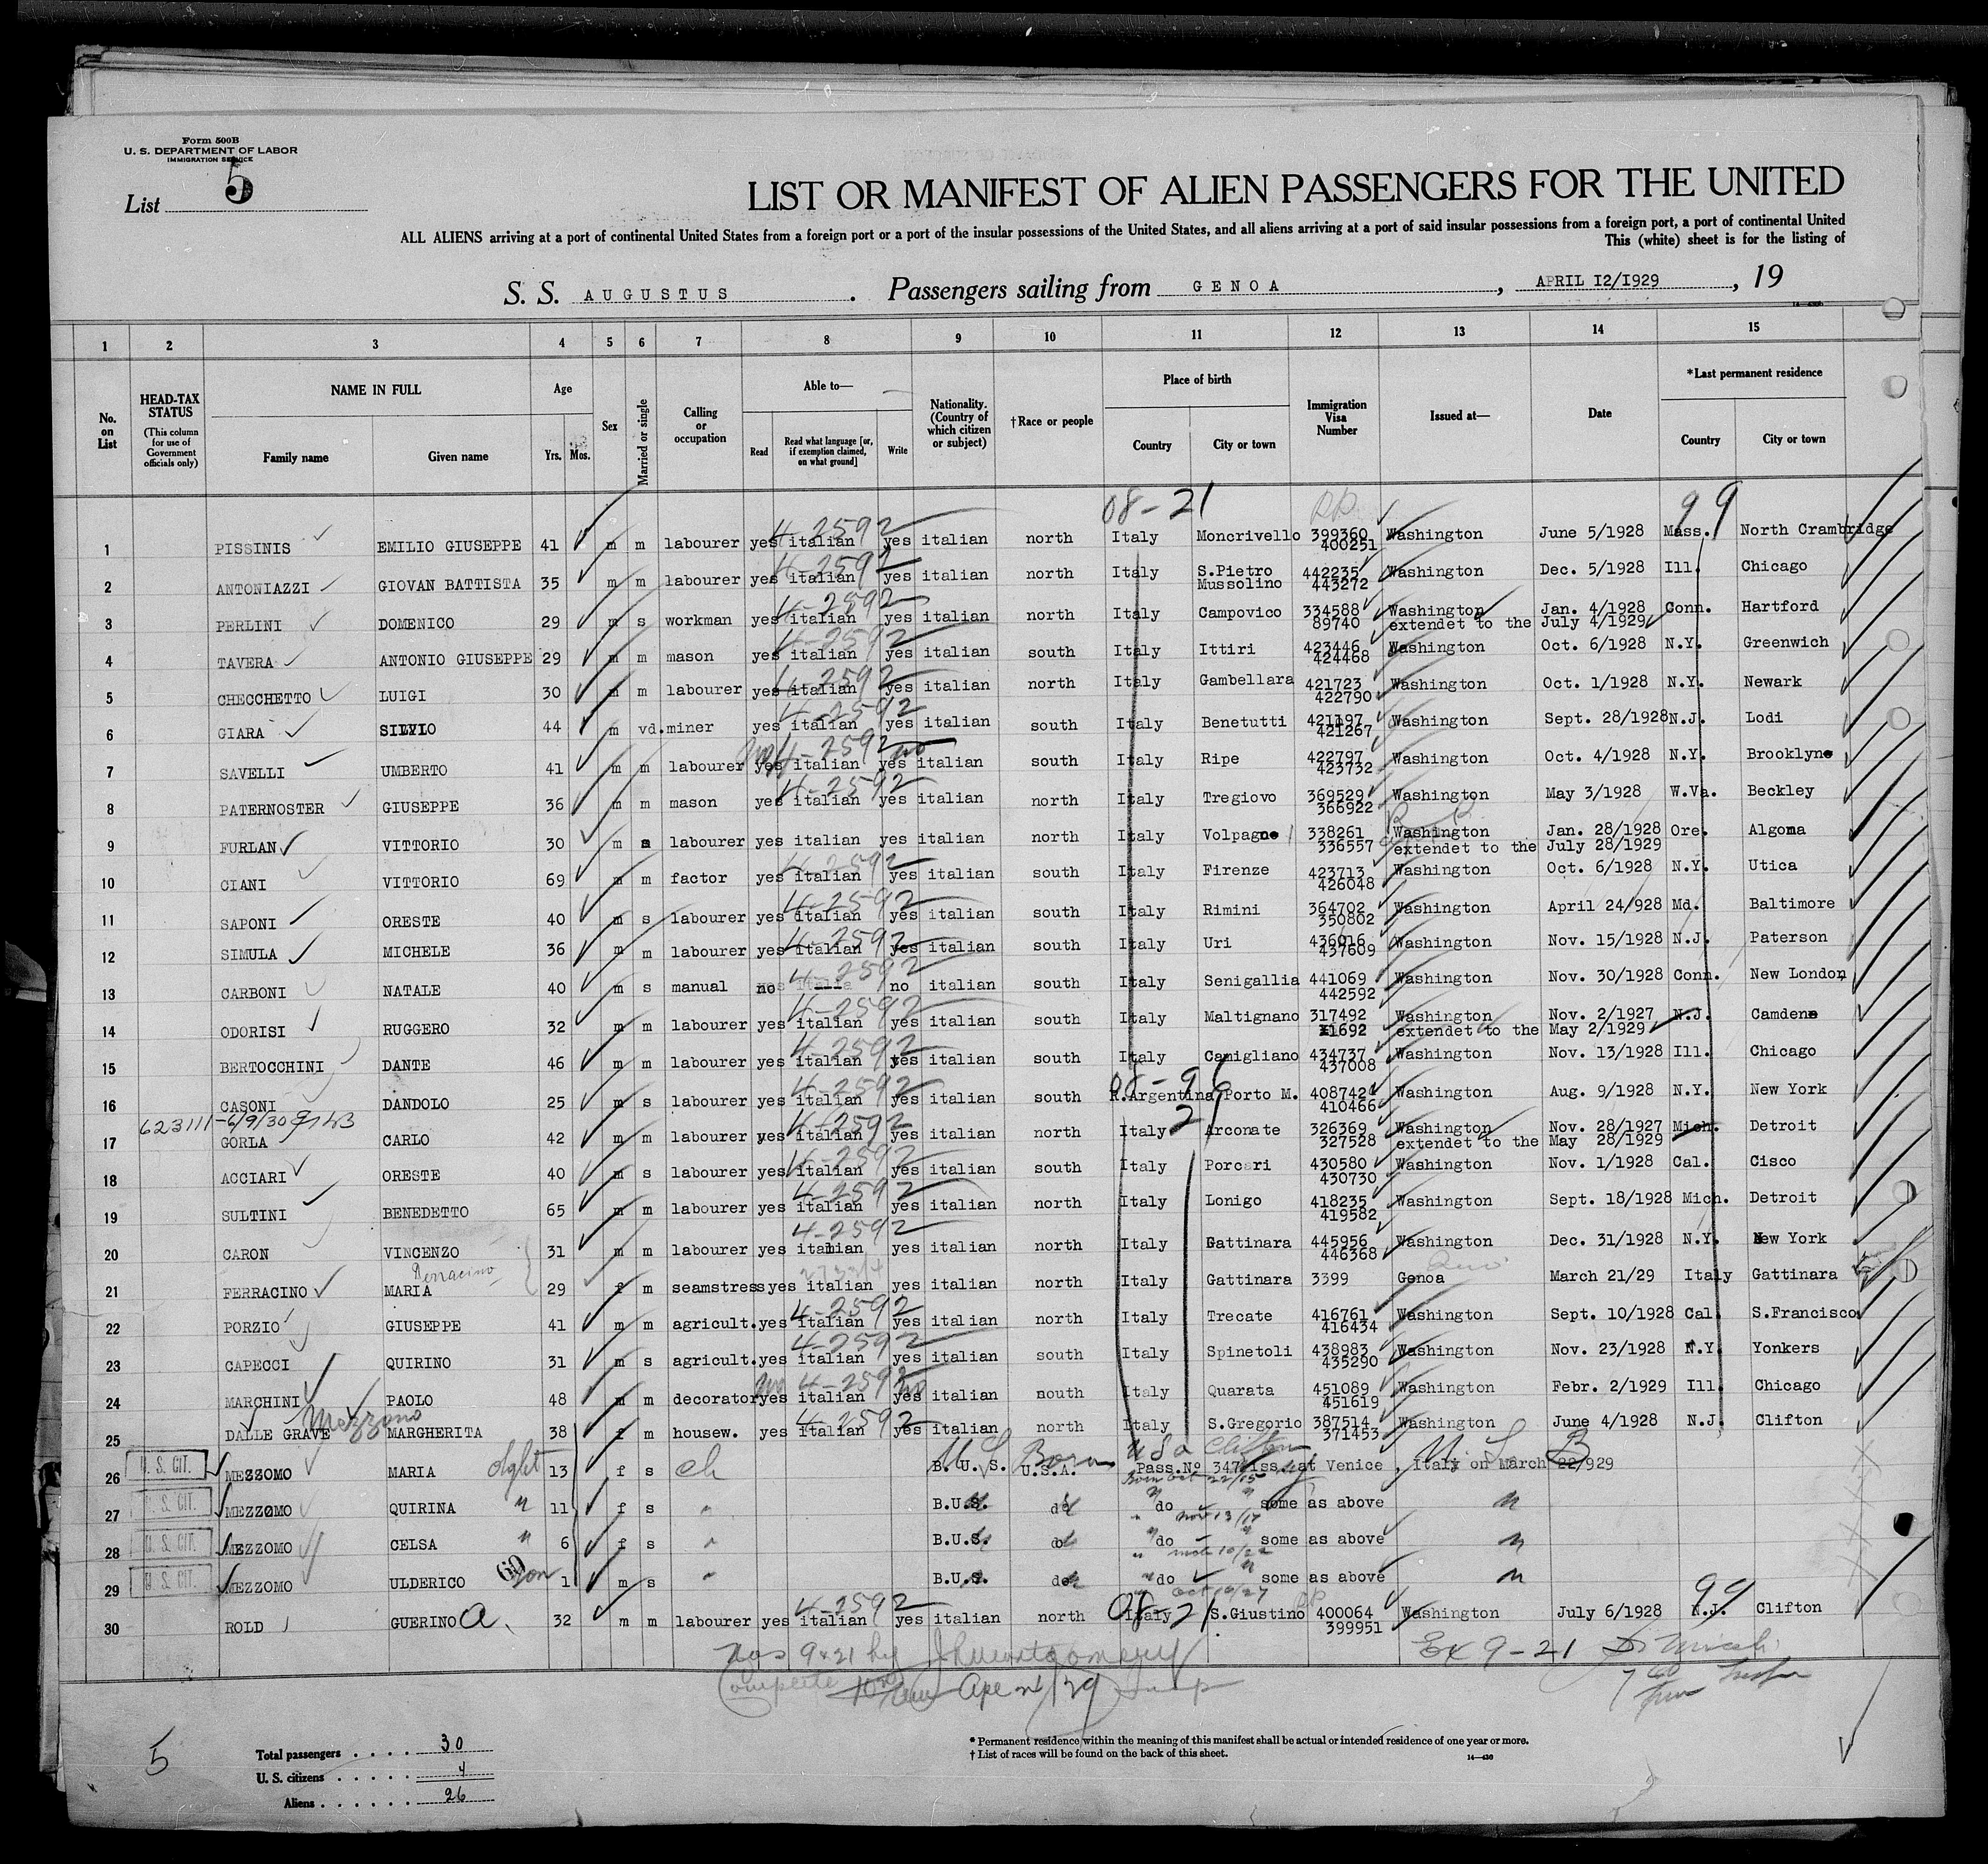 Form 500B
U. S. DEPARTMENT OF LABOR
IMMIGRATION SERVICE
List 5
LIST OR MANIFEST OF ALIEN PASSENGERS FOR THE UNITED
ALL ALIENS arriving at a port of continental United States from a foreign port or a port of the insular possessions of the United States, and all aliens arriving at a port of said insular possessions from a foreign port, a port of continental United
This (white) sheet is for the listing of
S. S. AUGUSTUS . Passengers sailing from GENOA , APRIL I2/I929 , 19
1 2 3 4 5 6 7 8 9 10 11 12 13 14 15
No. on List
HEAD-TAX STATUS (This column for use of Government officials only)
NAME IN FULL Family name Given name
Age Yrs. Mos.
Sex
Married or single
Calling or occupation
Able to— Read Read what language [or, if exemption claimed, on what ground] Write
Nationality. (Country of which citizen or subject)
†Race or people
Place of birth Country City or town
Immigration Visa Number
Issued at—
Date
*Last permanent residence Country City or town
08-21 99
1 PISSINIS EMILIO GIUSEPPE 41 m m labourer yes italian 4-2592 yes italian north Italy Moncrivello 399360 400251 Washington June 5/1928 Mass. North Crambridge
2 ANTONIAZZI GIOVAN BATTISTA 35 m m labourer yes italian 4-2592 yes italian north Italy S.Pietro Mussolino 442235 443272 Washington Dec. 5/1928 Ill. Chicago
3 PERLINI DOMENICO 29 m s workman yes italian 4-2592 yes italian north Italy Campovico 334588 89740 Washington extendet to the Jan. 4/1928 July 4/1929 Conn. Hartford
4 TAVERA ANTONIO GIUSEPPE 29 m m mason yes italian 4-2592 yes italian south Italy Ittiri 423446 424468 Washington Oct. 6/1928 N.Y. Greenwich
5 CHECCHETTO LUIGI 30 m m labourer yes italian 4-2592 yes italian north Italy Gambellara 421723 422790 Washington Oct. 1/1928 N.Y. Newark
6 GIARA SILVIO 44 m vd. miner yes italian 4-2592 yes italian south Italy Benetutti 421197 421267 Washington Sept. 28/1928 N.J. Lodi
7 SAVELLI UMBERTO 41 m m labourer yes italian 4-2592 yes no italian south Italy Ripe 422797 423732 Washington Oct. 4/1928 N.Y. Brooklyne
8 PATERNOSTER GIUSEPPE 36 m m mason yes italian 4-2592 yes italian north Italy Tregiovo 369529 366922 Washington May 3/1928 W.Va. Beckley
9 FURLAN VITTORIO 30 m s labourer yes italian yes italian north Italy Volpagne 338261 336557 Washington extendet to the Jan. 28/1928 July 28/1929 Ore. Algoma
10 CIANI VITTORIO 69 m m factor yes italian 4-2592 yes italian south Italy Firenze 423713 426048 Washington Oct. 6/1928 N.Y. Utica
11 SAPONI ORESTE 40 m s labourer yes italian 4-2592 yes italian south Italy Rimini 364702 350802 Washington April 24/928 Md. Baltimore
12 SIMULA MICHELE 36 m m labourer yes italian 4-2592 yes italian south Italy Uri 436016 437609 Washington Nov. 15/1928 N.J. Paterson
13 CARBONI NATALE 40 m s manual no 4-2592 no italian south Italy Senigallia 441069 442592 Washington Nov. 30/1928 Conn. New London
14 ODORISI RUGGERO 32 m m labourer yes italian 4-2592 yes italian south Italy Maltignano 317492 1692 Washington extendet to the Nov. 2/1927 May 2/1929 N.J. Camdene
15 BERTOCCHINI DANTE 46 m m labourer yes italian 4-2592 yes italian south Italy Camigliano 434737 437008 Washington Nov. 13/1928 Ill. Chicago
16 CASONI DANDOLO 25 m s labourer yes italian 4-2592 yes italian south R.Argentina Porto M. 408742 410466 Washington Aug. 9/1928 N.Y. New York
623111-6/9/30
17 GORLA CARLO 42 m m labourer yes italian 4-2592 yes italian north Italy Arconate 326369 327528 Washington extendet to the Nov. 28/1927 May 28/1929 Mich. Detroit
18 ACCIARI ORESTE 40 m s labourer yes italian 4-2592 yes italian south Italy Porcari 430580 430730 Washington Nov. 1/1928 Cal. Cisco
19 SULTINI BENEDETTO 65 m m labourer yes italian 4-2592 yes italian north Italy Lonigo 418235 419582 Washington Sept. 18/1928 Mich. Detroit
20 CARON VINCENZO 31 m m labourer yes italian 4-2592 yes italian north Italy Gattinara 445956 446368 Washington Dec. 31/1928 N.Y. New York
21 FERRACINO MARIA 29 f m seamstress yes italian yes italian north Italy Gattinara 3399 Genoa March 21/29 Italy Gattinara
22 PORZIO GIUSEPPE 41 m m agricult. yes italian 4-2592 yes italian north Italy Trecate 416761 416434 Washington Sept. 10/1928 Cal. S.Francisco
23 CAPECCI QUIRINO 31 m s agricult. yes italian 4-2592 yes italian south Italy Spinetoli 438983 435290 Washington Nov. 23/1928 N.Y. Yonkers
24 MARCHINI PAOLO 48 m m decorator yes italian 4-2592 yes no italian nouth Italy Quarata 451089 451619 Washington Febr. 2/1929 Ill. Chicago
25 DALLE GRAVE Mezzomo MARGHERITA 38 f m housew. yes italian 4-2592 yes italian north Italy S.Gregorio 387514 371453 Washington June 4/1928 N.J. Clifton
26 U. S. CIT. MEZZOMO MARIA dght 13 f s ch B.U.S. U.S.A. Born USA Clifton Pass.Nº 347 iss. at Venice, Italy on March 22/929
27 U. S. CIT. MEZZOMO QUIRINA " 11 f s " B.U.S. do " do " some as above "
28 U. S. CIT. MEZZOMO CELSA " 6 f s " B.U.S. do " do " some as above "
29 U. S. CIT. MEZZOMO ULDERICO son 1 m s " B.U.S. do " do " some as above "
08-21 99
30 ROLD GUERINO a. 32 m m labourer yes italian 4-2592 yes italian north Italy S.Giustino 400064 399951 Washington July 6/1928 N.J. Clifton
Nos 9 & 21 by
Ex 9-21
5
Total passengers . . . . 30
U. S. citizens . . . . . 4
Aliens . . . . . . 26
* Permanent residence within the meaning of this manifest shall be actual or intended residence of one year or more.
† List of races will be found on the back of this sheet.
14—430